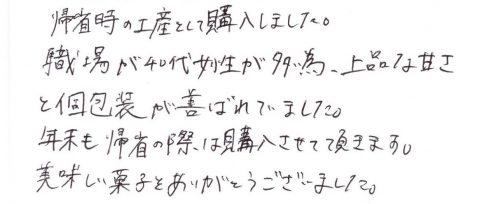 帰省時の土産として購入しました。
職場が40代女性が多い為、上品な甘さ
と個包装が喜ばれていました。
年末も帰省の際は購入させて頂きます。
美味しい菓子をありがとうございました。